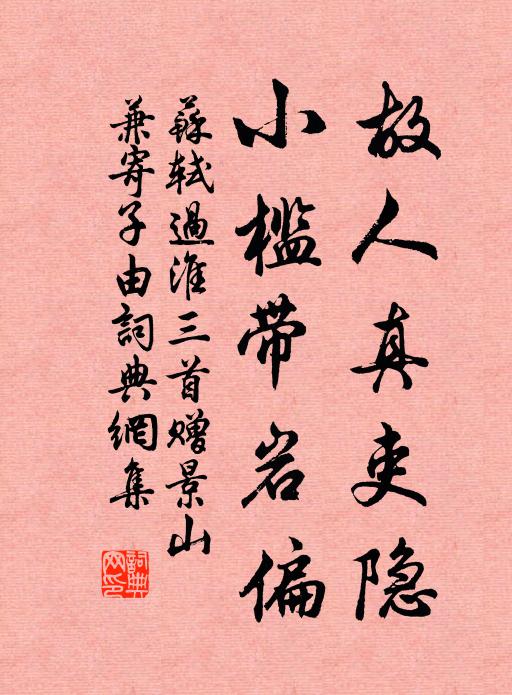 故人真吏隐
小槛带岩偏
蘇軾過淮三首赠景山
兼寄子由詞典網集
詞典网印